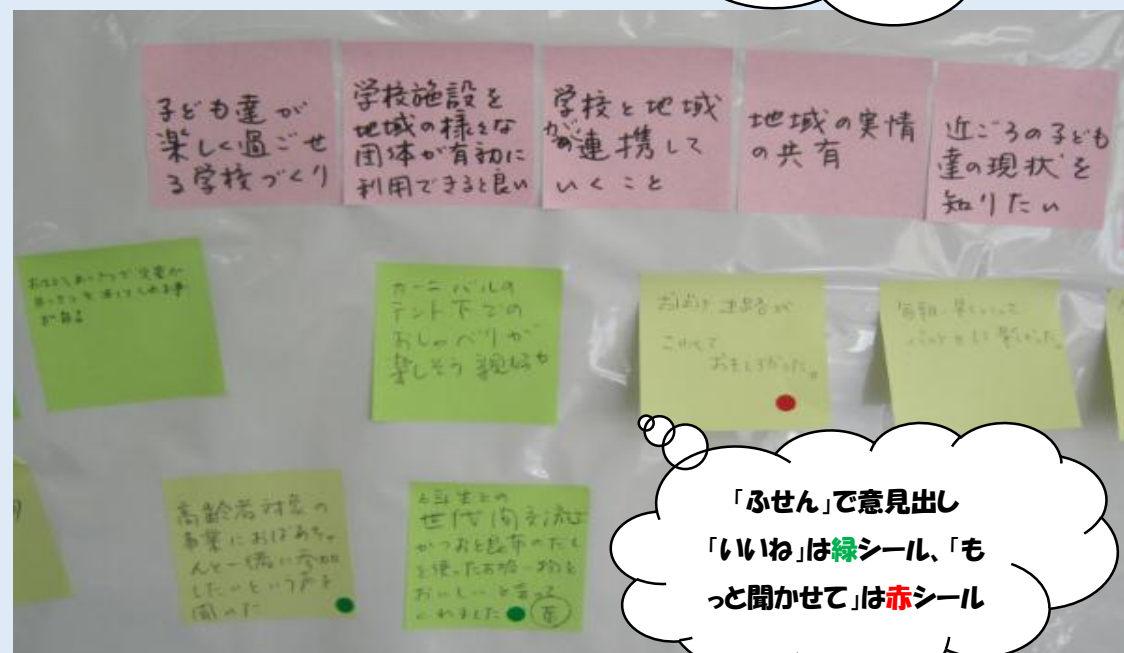 子ども達が
楽しく過ごせ
る学校づくり
学校施設を
地域の様々な
団体が有効に
利用できると良い
学校と地域
が連携して
いくこと
地域の実情
の共有
近ごろの子ども
達の現状を
知りたい
カーニバルの
テント下での
おしゃべりが
楽しそう 親子も
おばけ迷路が
こわくて
おもしろかった。
高齢者対象の
事業におばあちゃ
んと一緒に参加
したいという声を
聞いた
世代間交流で
かつおと昆布のだし
を使ったお吸い物を
おいしいと言って
くれました
「ふせん」で意見出し
「いいね」は緑シール、「も
っと聞かせて」は赤シール